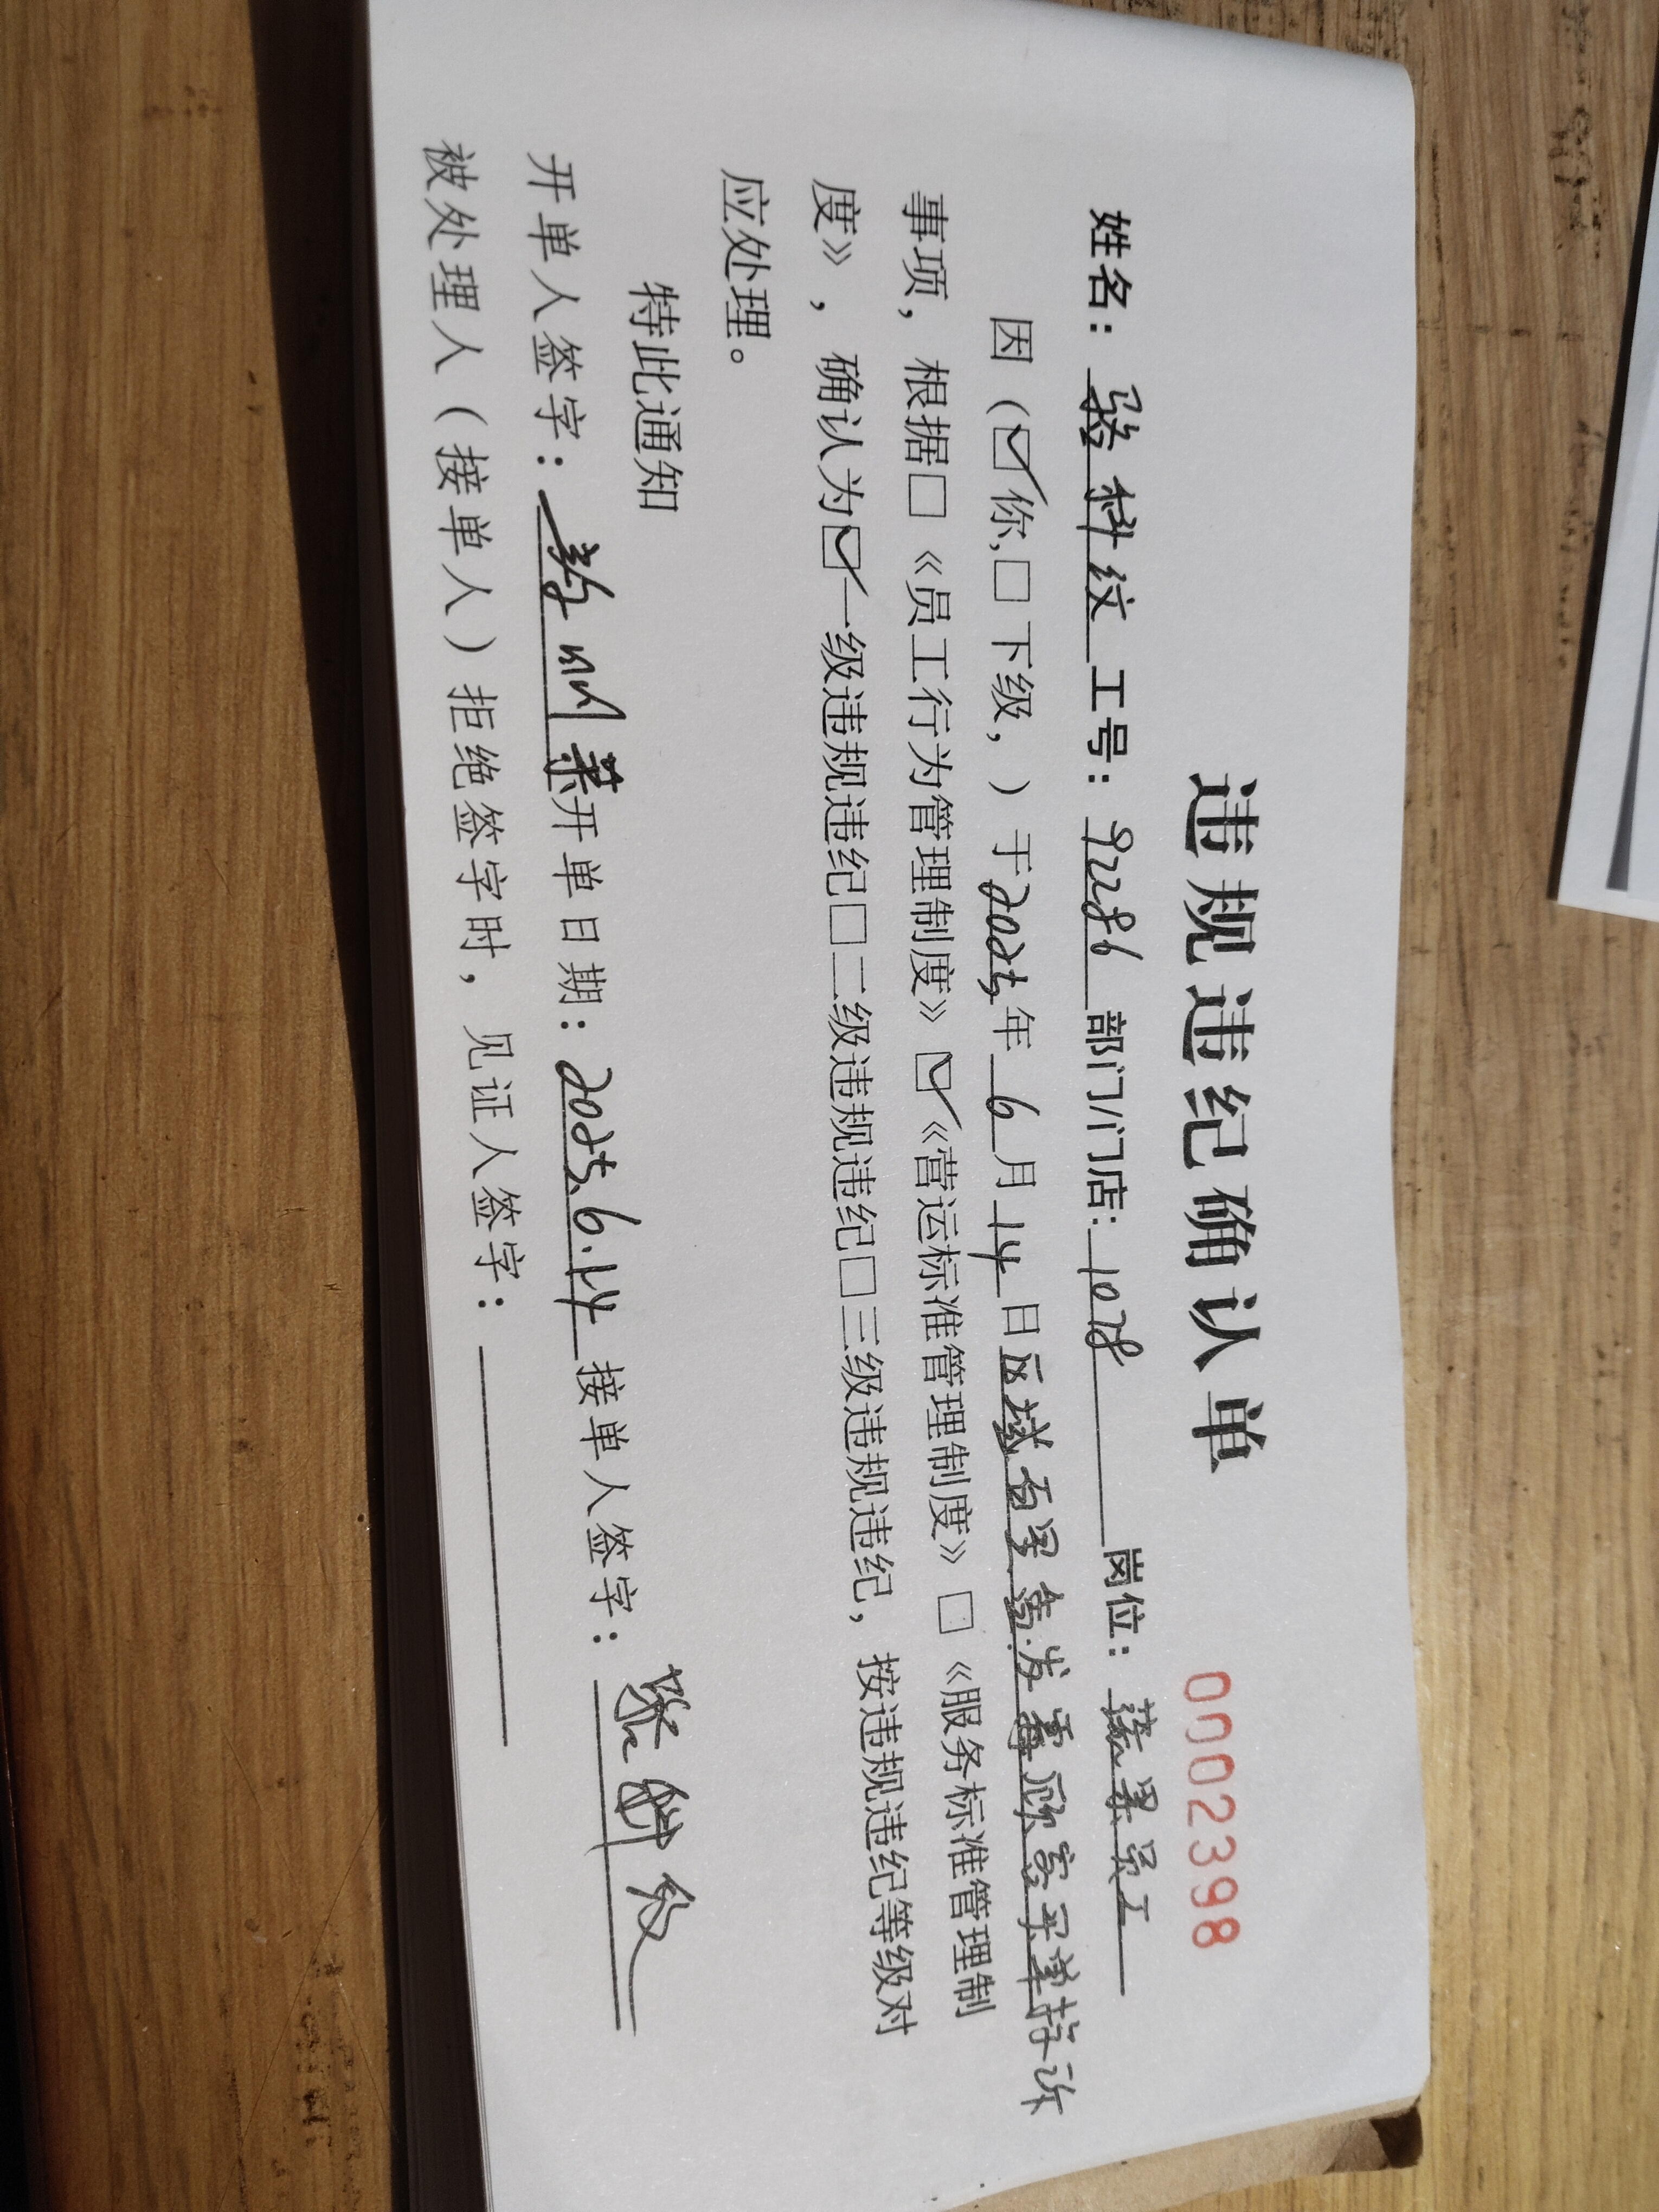 违规违纪确认单
0002398
姓名： 工号：92286 部门/门店：1028 岗位：蔬果员工
因（☑你,□下级，）于2025年6月14日区域百果售发霉顾客买单投诉
事项，根据□《员工行为管理制度》☑《营运标准管理制度》□《服务标准管理制
度》，确认为☑一级违规违纪□二级违规违纪□三级违规违纪，按违规违纪等级对
应处理。
特此通知
开单人签字： 开单日期：2025.6.14 接单人签字：
被处理人（接单人）拒绝签字时，见证人签字：